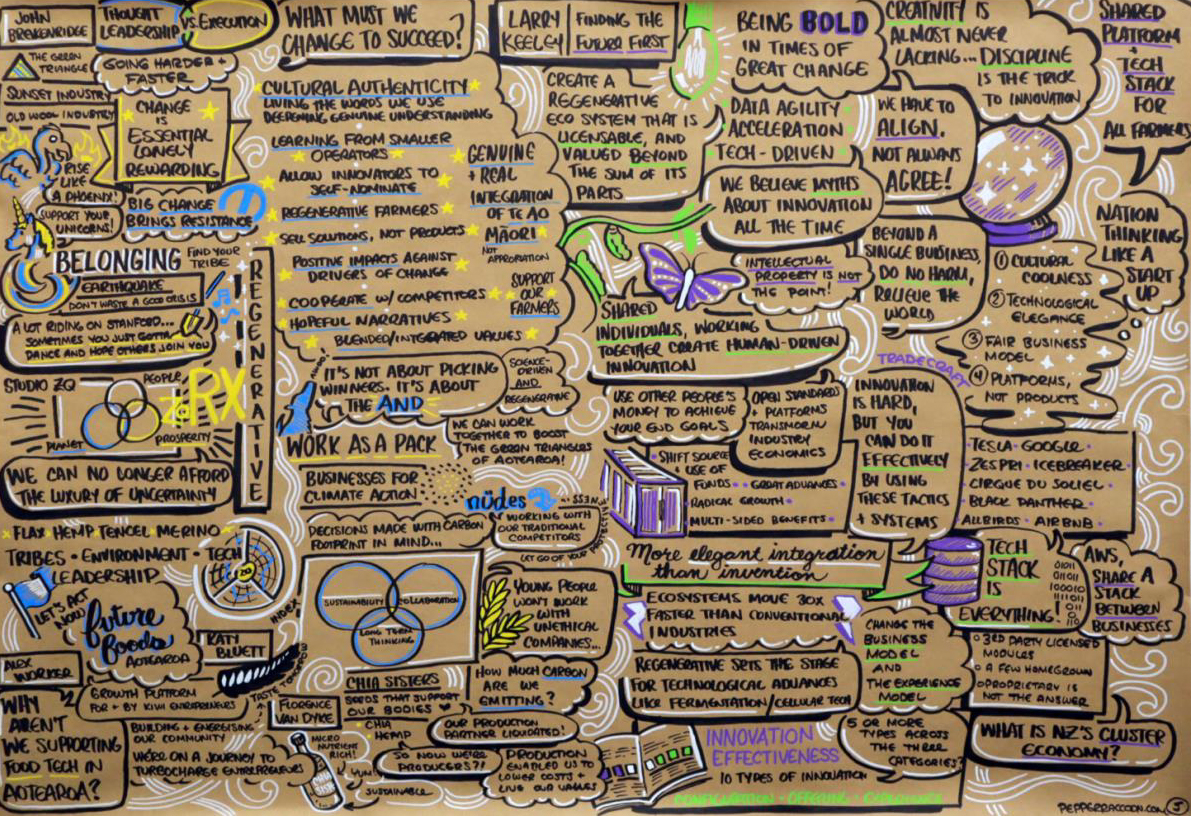 JOHN
BREKENRIDGE
THOUGHT
LEADERSHIP
VS EXECUTION
THE GREEN
TRIANGLE
GOING HARDER +
FASTER
SUNSET INDUSTRY
OLD WOOL INDUSTRY
CHANGE
IS
ESSENTIAL
LONELY
REWARDING
RISE
LIKE
A PHOENIX!
SUPPORT YOUR
UNICORNS!
BIG CHANGE
BRINGS RESISTANCE
BELONGING
FIND YOUR
TRIBE
EARTHQUAKE
DON'T WASTE A GOOD CRISIS
A LOT RIDING ON STANFORD...
SOMETIMES YOU JUST GOTTA
DANCE AND HOPE OTHERS JOIN YOU
REGENERATIVE
STUDIO ZQ
PEOPLE
PLANET
PROSPERITY
ZQRX
WE CAN NO LONGER AFFORD
THE LUXURY OF UNCERTAINTY
WHAT MUST WE
CHANGE TO SUCCEED?
CULTURAL AUTHENTICITY
LIVING THE WORDS WE USE
DEEPENING GENUINE UNDERSTANDING
LEARNING FROM SMALLER
OPERATORS
ALLOW INNOVATORS TO
SELF-NOMINATE
REGENERATIVE FARMERS
SELL SOLUTIONS, NOT PRODUCTS
POSITIVE IMPACTS AGAINST
DRIVERS OF CHANGE
COOPERATE W/ COMPETITORS
HOPEFUL NARRATIVES
BLENDED/INTEGRATED VALUES
GENUINE
+ REAL
INTEGRATION
OF TE AO
MĀORI
NOT
APPROPRIATION
SUPPORT
OUR
FARMERS
IT'S NOT ABOUT PICKING
WINNERS. IT'S ABOUT
THE AND
SCIENCE-
DRIVEN
AND
REGENERATIVE
WORK AS A PACK
WE CAN WORK
TOGETHER TO BOOST
THE GREEN TRIANGLES
OF AOTEAROA!
BUSINESSES FOR
CLIMATE ACTION
nüdes
WORKING WITH
OUR TRADITIONAL
COMPETITORS
DECISIONS MADE WITH CARBON
FOOTPRINT IN MIND...
SUSTAINABILITY
COLLABORATION
LONG TERM
THINKING
YOUNG PEOPLE
WON'T WORK
WITH
UNETHICAL
COMPANIES...
FLAX HEMP TENCEL MERINO
TRIBES • ENVIRONMENT • TECH
LEADERSHIP
LET'S ACT
NOW
future
foods
AOTEAROA
KATY
BLUETT
ALEX
WORKER
GROWTH PLATFORM
FOR + BY KIWI ENTREPRENEURS
WHY
AREN'T
WE SUPPORTING
FOOD TECH IN
AOTEAROA?
BUILDING + ENERGISING
OUR COMMUNITY
WE'RE ON A JOURNEY TO
TURBOCHARGE ENTREPRENEURS
FLORENCE
VAN DYKE
CHIA SISTERS
SEEDS THAT SUPPORT
OUR BODIES
CHIA
HEMP
MICRO
NUTRIENT
RICH!
YUM!
SUSTAINABLE
HOW MUCH CARBON
ARE WE
EMITTING?
OUR PRODUCTION
PARTNER LIQUIDATED!
SO NOW WE'RE
PRODUCERS?!
PRODUCTION
ENABLED US TO
LOWER COSTS +
LIVE OUR VALUES
LARRY
KEELEY
FINDING THE
FUTURE FIRST
CREATE A
REGENERATIVE
ECO SYSTEM THAT IS
LICENSABLE, AND
VALUED BEYOND
THE SUM OF ITS
PARTS
BEING BOLD
IN TIMES OF
GREAT CHANGE
DATA AGILITY
ACCELERATION
TECH - DRIVEN
WE BELIEVE MYTHS
ABOUT INNOVATION
ALL THE TIME
INTELLECTUAL
PROPERTY IS NOT
THE POINT!
SHARED
INDIVIDUALS, WORKING
TOGETHER CREATE HUMAN-DRIVEN
INNOVATION
CREATIVITY IS
ALMOST NEVER
LACKING... DISCIPLINE
IS THE TRICK
TO INNOVATION
WE HAVE TO
ALIGN,
NOT ALWAYS
AGREE!
BEYOND A
SINGLE BUSINESS,
DO NO HARM,
RELIEVE THE
WORLD
SHARED
PLATFORM
+
TECH
STACK
FOR
ALL FARMERS
NATION
THINKING
LIKE A
START
UP
① CULTURAL
COOLNESS
② TECHNOLOGICAL
ELEGANCE
③ FAIR BUSINESS
MODEL
④ PLATFORMS,
NOT PRODUCTS
TRADECRAFT
USE OTHER PEOPLE'S
MONEY TO ACHIEVE
YOUR END GOALS
OPEN STANDARDS
+ PLATFORMS
TRANSFORM
INDUSTRY
ECONOMICS
SHIFT SOURCE
+ USE OF
FUNDS • GREAT ADVANCES
RADICAL GROWTH
MULTI-SIDED BENEFITS
INNOVATION
IS HARD,
BUT YOU
CAN DO IT
EFFECTIVELY
BY USING
THESE TACTICS
+ SYSTEMS
TESLA • GOOGLE
ZESPRI • ICEBREAKER
CIRQUE DU SOLIEL
BLACK PANTHER
ALLBIRDS • AIRBNB
More elegant integration
than invention
ECOSYSTEMS MOVE 30X
FASTER THAN CONVENTIONAL
INDUSTRIES
TECH
STACK
IS
EVERYTHING!
AWS,
SHARE A
STACK
BETWEEN
BUSINESSES
CHANGE THE
BUSINESS
MODEL
AND
THE EXPERIENCE
MODEL
3RD PARTY LICENSED
MODULES
A FEW HOMEGROWN
PROPRIETARY IS
NOT THE ANSWER
REGENERATIVE SETS THE STAGE
FOR TECHNOLOGICAL ADVANCES
LIKE FERMENTATION/CELLULAR TECH
INNOVATION
EFFECTIVENESS
10 TYPES OF INNOVATION
CONFIGURATION • OFFERING • EXPERIENCE
5 OR MORE
TYPES ACROSS
THE THREE
CATEGORIES?
WHAT IS NZ'S CLUSTER
ECONOMY?
PEPPERRACCOON.COM